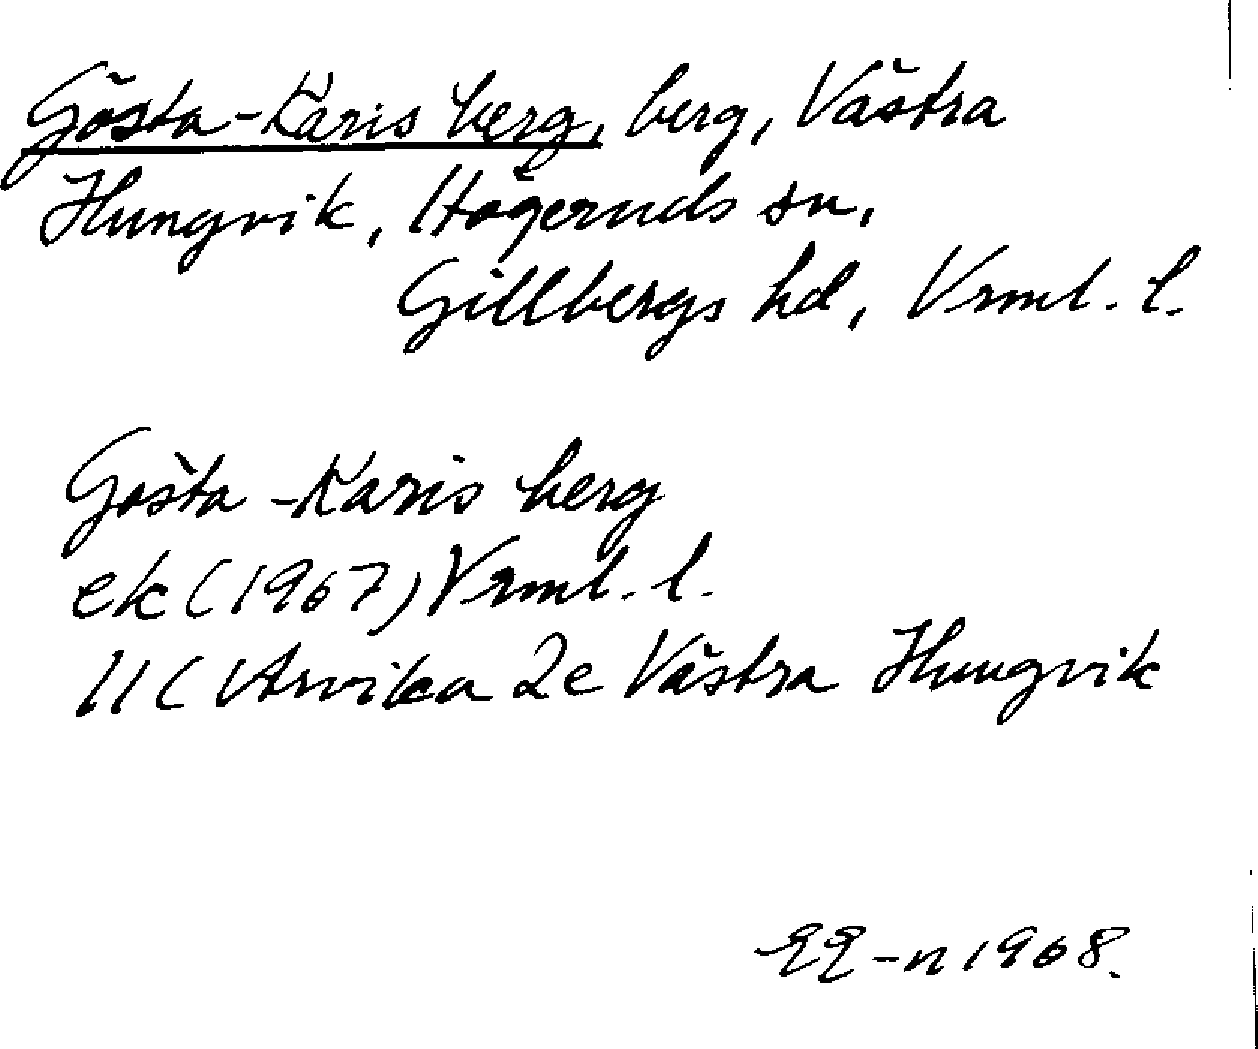 Gösta-Karis berg, berg, Västra
Hungvik, Högeruds sn,
Gillbergs hd, Vrml. l.
Gösta-Karis berg
ek (1967) Vrml. l.
11C Arvika 2e Västra Hungvik
EE-n 1968.